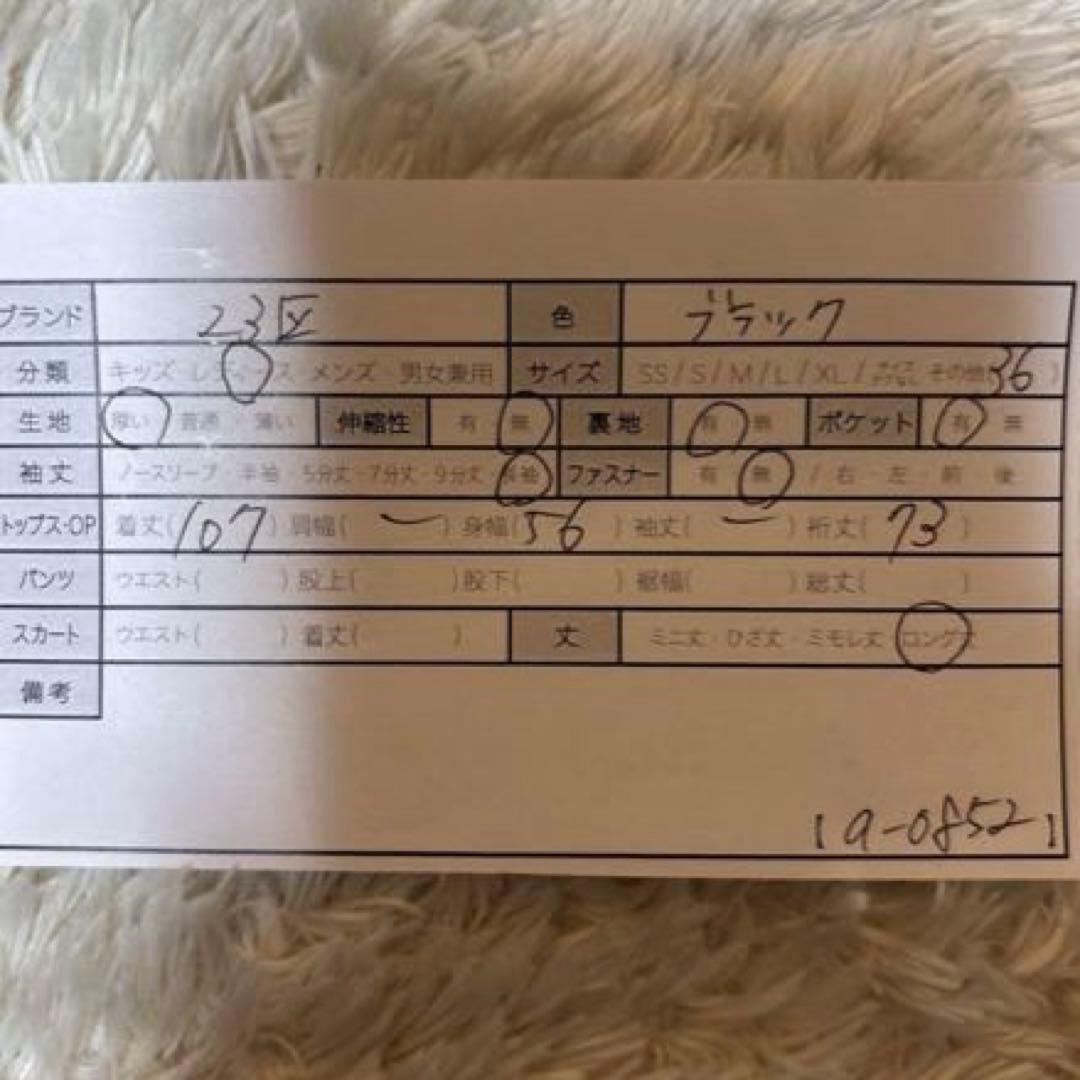 ブランド 23区 色 ブラック
分類 キッズ・レディース・メンズ・男女兼用 サイズ SS/S/M/L/XL/ その他 36 )
生地 厚い・普通・薄い 伸縮性 有・無 裏地 有・無 ポケット 有・無
袖丈 ノースリーブ・半袖・5分丈・7分丈・9分丈・長袖 ファスナー 有・無 / 右・左・前・後
トップス・OP 着丈( 107 ) 肩幅( ー ) 身幅( 56 ) 袖丈( ー ) 裄丈( 73 )
パンツ ウエスト( ) 股上( ) 股下( ) 裾幅( ) 総丈( )
スカート ウエスト( ) 着丈( ) 丈 ミニ丈・ひざ丈・ミモレ丈・ロング丈
備考
【a-0852】